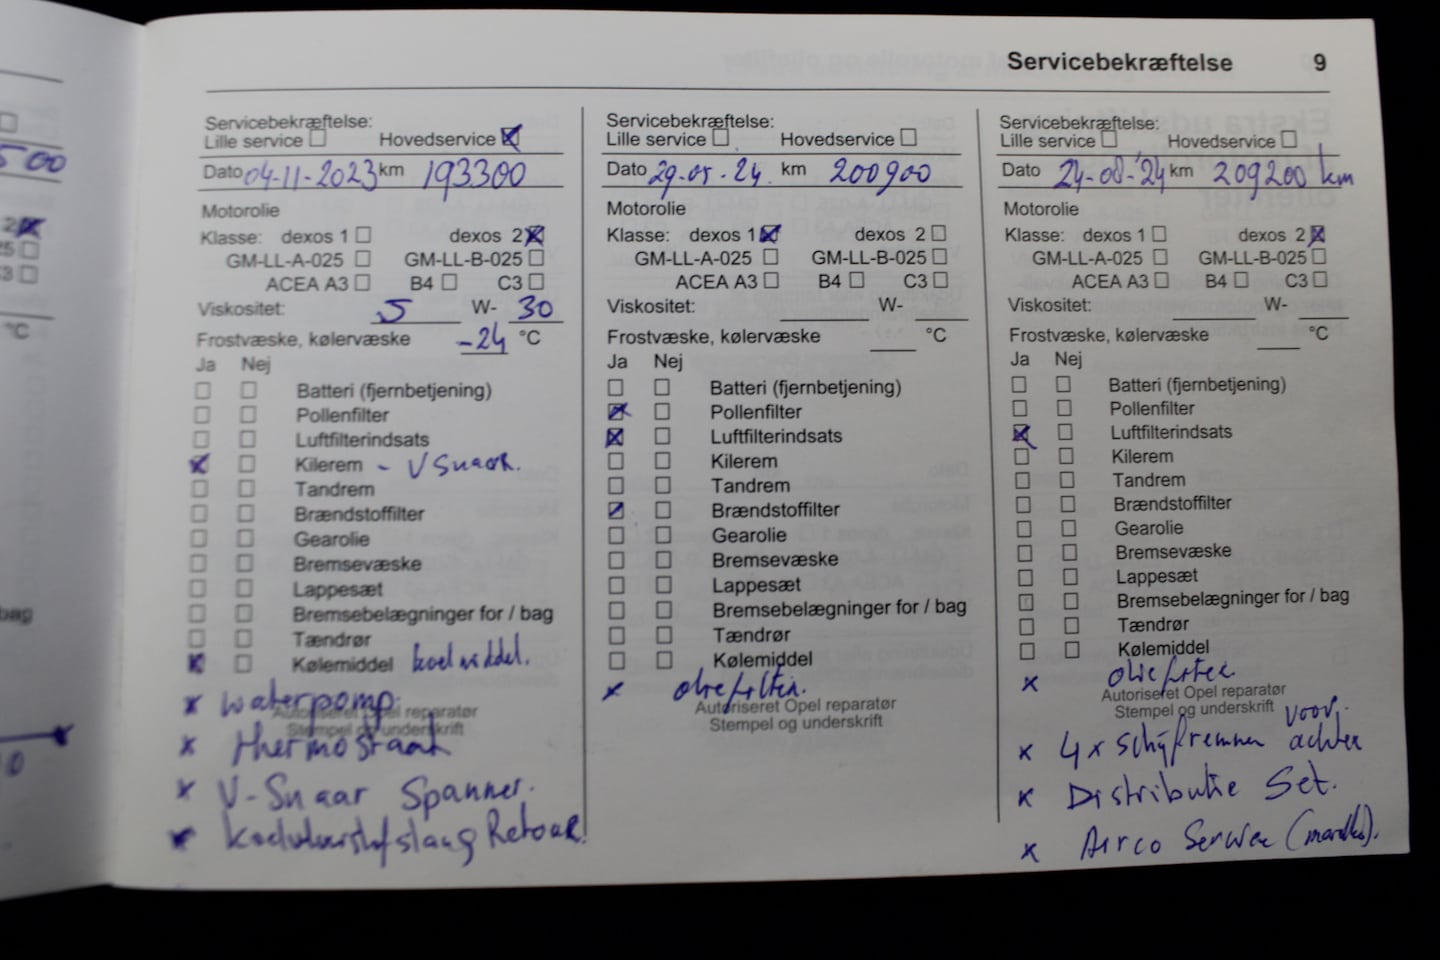 Servicebekræftelse 9
500
Servicebekræftelse:
Lille service Hovedservice
Dato 04-11-2023 km 193300
Motorolie
Klasse: dexos 1 dexos 2
GM-LL-A-025 GM-LL-B-025
ACEA A3 B4 C3
Viskositet: 5 W- 30
Frostvæske, kølervæske -24 °C
Ja Nej
Batteri (fjernbetjening)
Pollenfilter
Luftfilterindsats
Kilerem - V Snaar.
Tandrem
Brændstoffilter
Gearolie
Bremsevæske
Lappesæt
Bremsebelægninger for / bag
Tændrør
Kølemiddel koelmiddel.
x waterpomp.
Autoriseret Opel reparatør
Stempel og underskrift
x thermostaat
x V-Snaar Spanner.
x koelvloeistofslang Retour!
Servicebekræftelse:
Lille service Hovedservice
Dato 29-05-24. km 200900
Motorolie
Klasse: dexos 1 dexos 2
GM-LL-A-025 GM-LL-B-025
ACEA A3 B4 C3
Viskositet: W-
Frostvæske, kølervæske °C
Ja Nej
Batteri (fjernbetjening)
Pollenfilter
Luftfilterindsats
Kilerem
Tandrem
Brændstoffilter
Gearolie
Bremsevæske
Lappesæt
Bremsebelægninger for / bag
Tændrør
Kølemiddel
x oliefilter.
Autoriseret Opel reparatør
Stempel og underskrift
Servicebekræftelse:
Lille service Hovedservice
Dato 24-08-'24 km 209200 km
Motorolie
Klasse: dexos 1 dexos 2
GM-LL-A-025 GM-LL-B-025
ACEA A3 B4 C3
Viskositet: W-
Frostvæske, kølervæske °C
Ja Nej
Batteri (fjernbetjening)
Pollenfilter
Luftfilterindsats
Kilerem
Tandrem
Brændstoffilter
Gearolie
Bremsevæske
Lappesæt
Bremsebelægninger for / bag
Tændrør
Kølemiddel
x oliefilter
Autoriseret Opel reparatør
Stempel og underskrift
voor.
x 4x schijfremmen achter
x Distributie Set.
x Airco Service